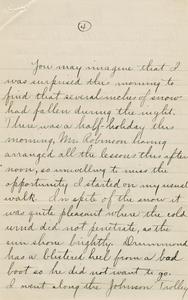 4
You may imagine that I
was surprised this morning to
find that several inches of snow
had fallen during the night.
There was a half-holiday this
morning, Mr. Robinson having
arranged all the lessons this after
noon, so unwilling to miss the
opportunity I started on my usual
walk. In spite of the snow it
was quite pleasant where the cold
wind did not penetrate, as the
sun shone brightly. Drummond
has a blistered heel from a bad
boot so he did not want to go.
I went along the Johnson Trolley